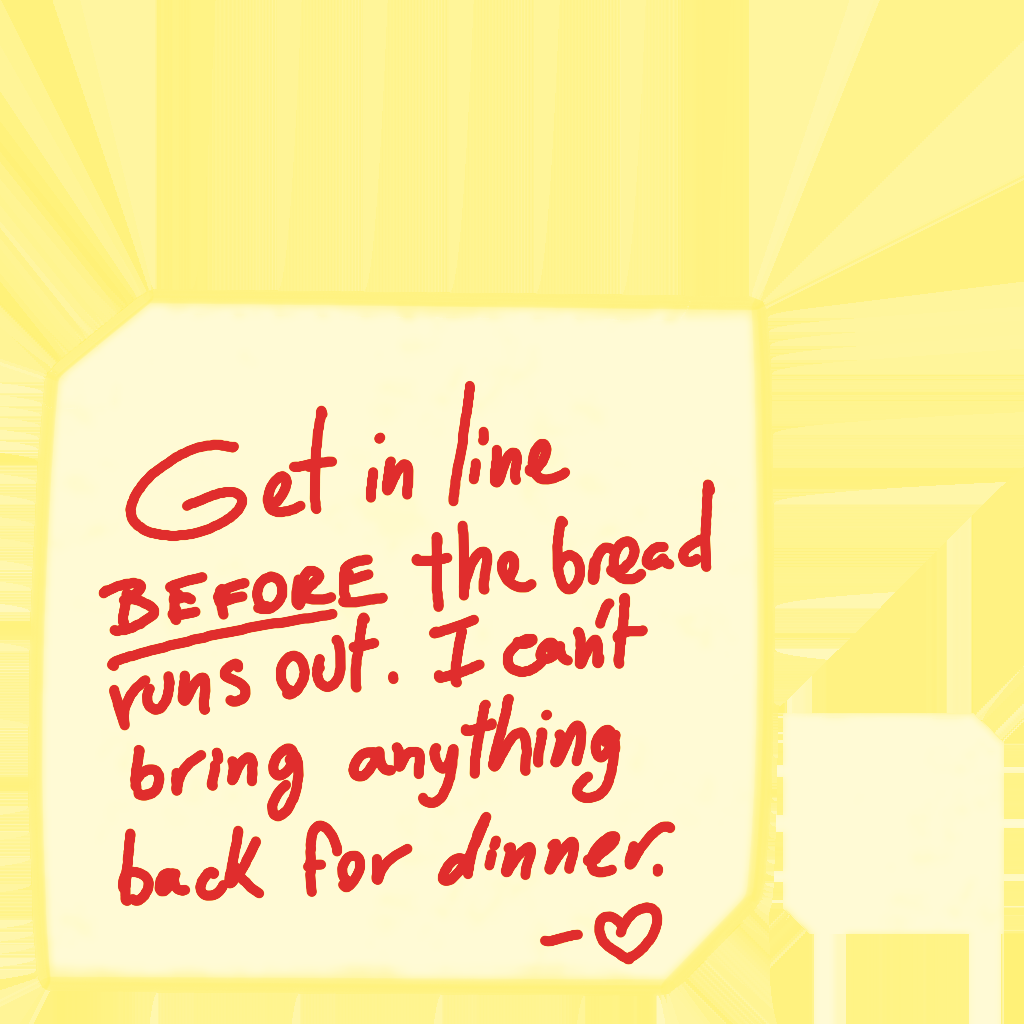 Get in line
BEFORE the bread
runs out. I can't
bring anything
back for dinner.
- ♡